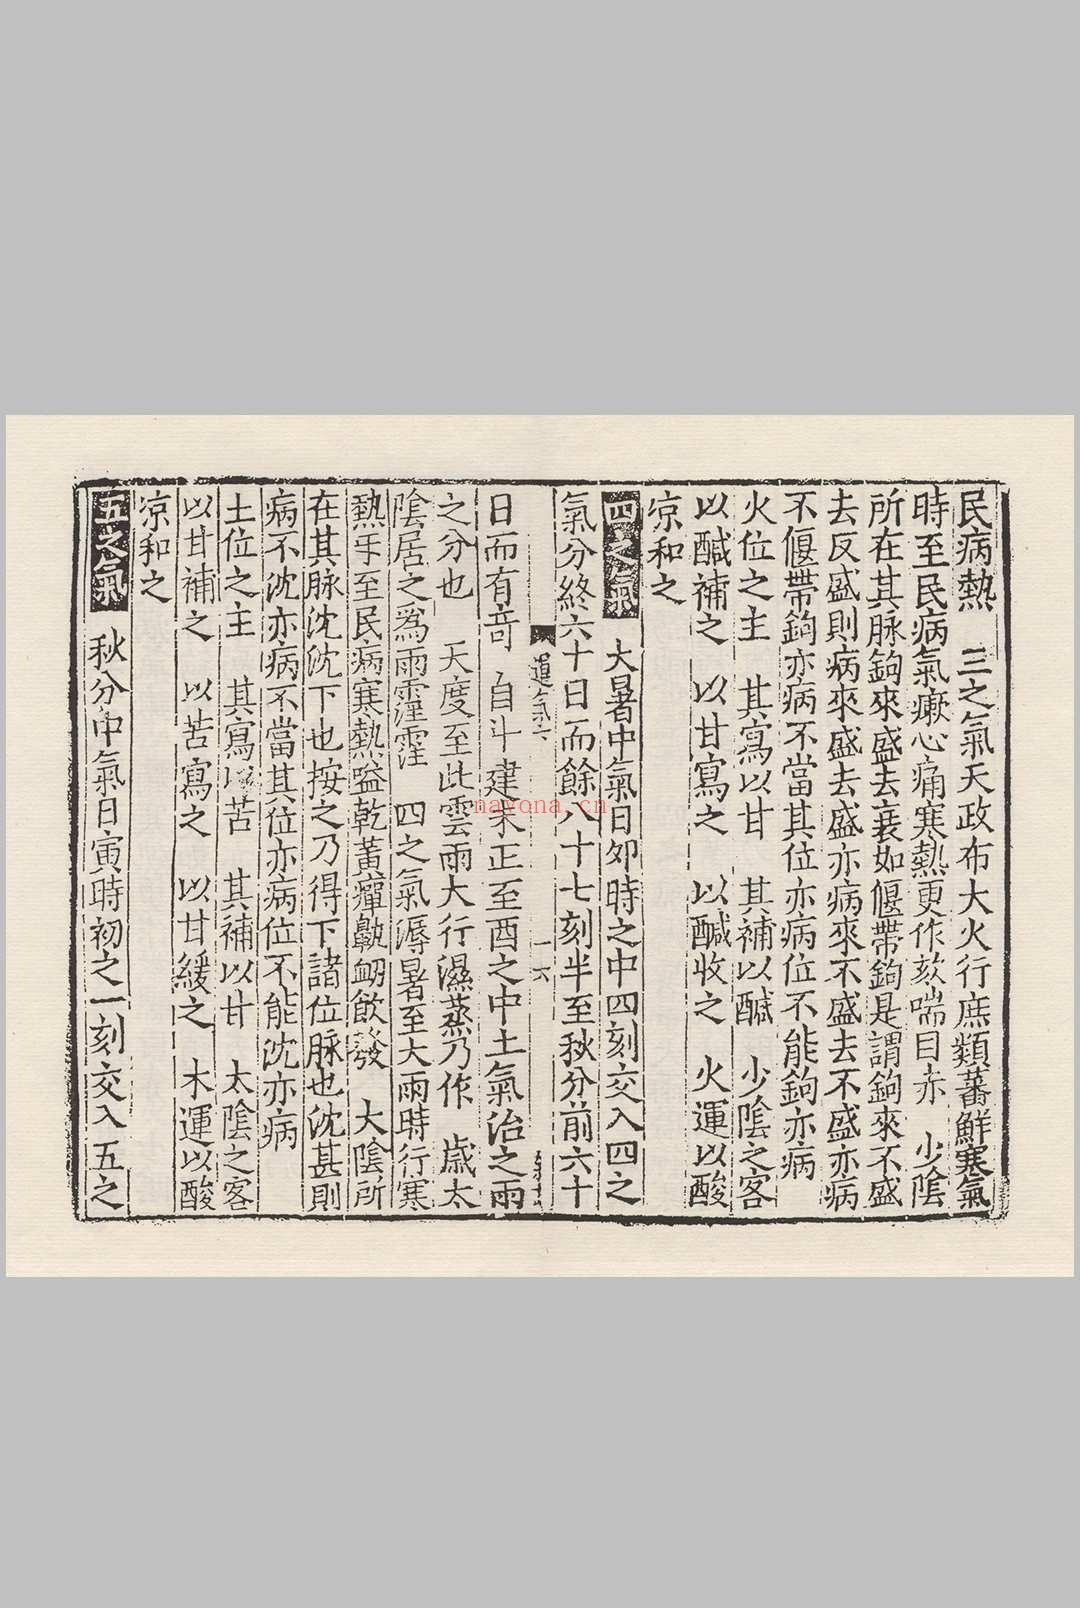 民病熱　三之氣天政布大火行庶類蕃鮮寒氣
時至民病氣瘚心痛寒熱更作欬喘目赤　少隂
所在其脉鉤來盛去衰如偃帶鉤是謂鉤來不盛
去反盛則病來盛去盛亦病來不盛去不盛亦病
不偃帶鉤亦病不當其位亦病位不能鉤亦病
火位之主　其寫以甘　其補以醎　少隂之客
以醎補之　以甘寫之　以醎收之　火運以酸
凉和之
四之氣　大暑中氣日夘時之中四刻交入四之
氣分終六十日而餘八十七刻半至秋分前六十
運氣六
一六
日而有竒　自斗建未正至酉之中土氣治之雨
之分也　天度至此雲雨大行濕蒸乃作　歲太
隂居之爲雨霪霪　四之氣溽暑至大雨時行寒
熱乎至民病寒熱嗌乾黃癉鼽衂飲發　大隂所
在其脉沈沈下也按之乃得下諸位脉也沈甚則
病不沈亦病不當其位亦病位不能沈亦病
土位之主　其寫以苦　其補以甘　太隂之客
以甘補之　以苦寫之　以甘緩之　木運以酸
凉和之
五之氣　秋分中氣日寅時初之一刻交入五之
nayona.cn